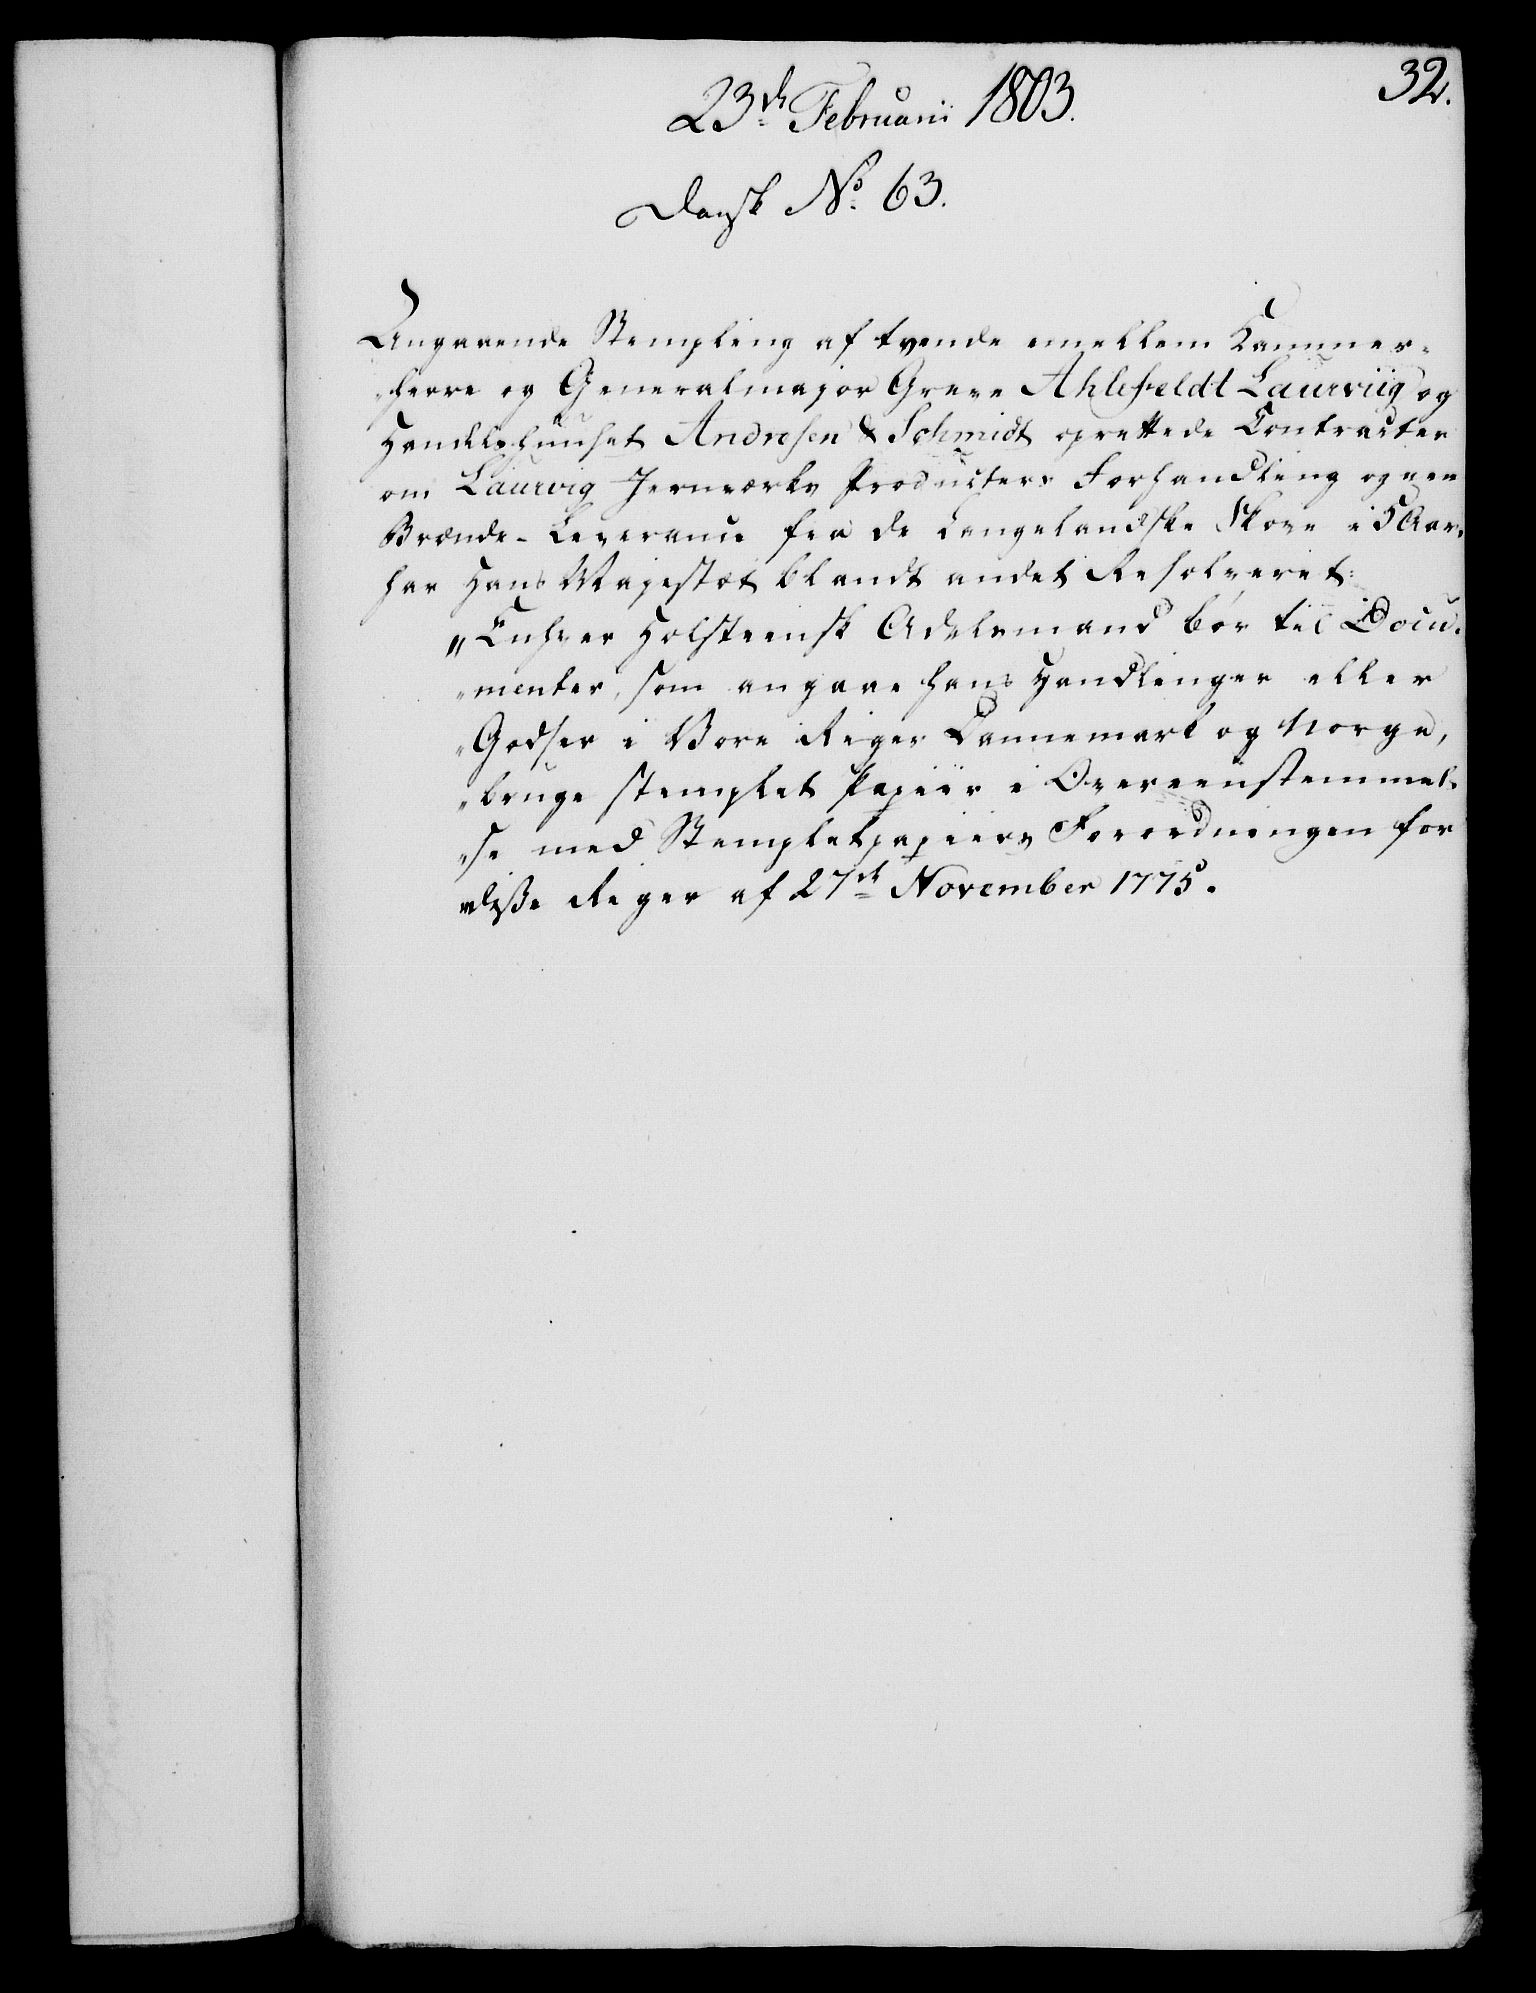 32.
23de Februarii 1803.
Dansk No. 63.
Angaaende Stempling af tvende emellem Kammer-
„herre og Generalmajor Greve Ahlefeldt Laurviig og
Handelshuuset Andresen & Schmidt oprettede Contracter
om Laurvig Jernværks Producters Forhandling og en
Brænde-Leverance fra de Langelandske Skove i 5 Aar,
har Hans Majestæt blandt andet Resolveret:
„Enhver Holsteensk Adelsmand bør til Docu-
„menter, som angaae hans Handlinger eller
„Godser i Vore Riger Dannemark og Norge,
„bruge stemplet Papiir i Overeenstemmel-
„se med Stempletpapiirs Forordningen for
„disse Riger af 27de November 1775.